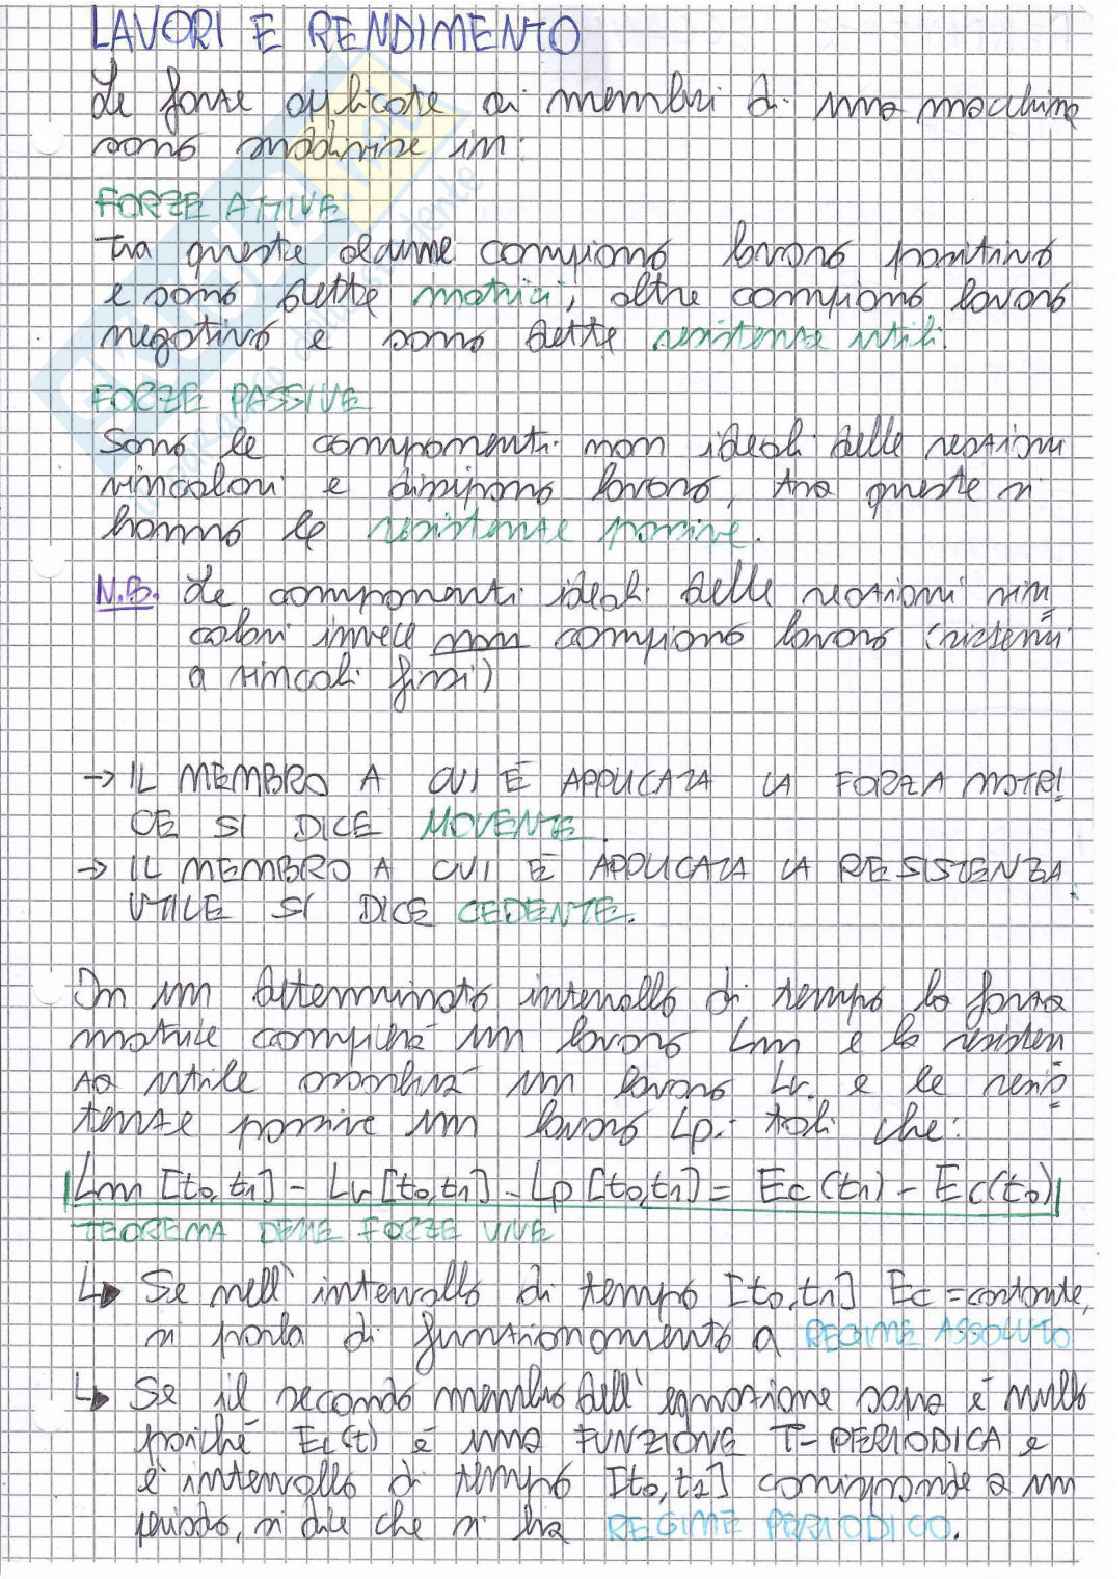 LAVORI E RENDIMENTO
Le forze applicate ai membri di una macchina
sono suddivise in:
FORZE ATTIVE
tra queste alcune compiono lavoro positivo
e sono dette motrici, altre compiono lavoro
negativo e sono dette resistenze utili.
FORZE PASSIVE
Sono le componenti non ideali delle reazioni
vincolari e dissipano lavoro, tra queste si
hanno le resistenze passive.
N.B. Le componenti ideali delle reazioni vin
colari invece non compiono lavoro (sistemi
a vincoli fissi)
→ IL MEMBRO A CUI È APPLICATA LA FORZA MOTRI
CE SI DICE MOVENTE.
→ IL MEMBRO A CUI È APPLICATA LA RESISTENZA
UTILE SI DICE CEDENTE.
In un determinato intervallo di tempo la forza
motrice compirà un lavoro Lm e la resisten
za utile un lavoro Lr e le resis
tenze passive un lavoro Lp. tali che:
Lm [t0,t1] - Lr [t0,t1] - Lp [t0,t1] = Ec (t1) - Ec(t0)
TEOREMA DELLE FORZE VIVE
↳ Se nell'intervallo di tempo [t0,t1] Ec = costante,
si parla di funzionamento a REGIME ASSOLUTO
↳ Se il secondo membro dell'equazione sopra è nullo
poiché Ec(t) è una FUNZIONE T-PERIODICA e
l'intervallo di tempo [t0,t1] corrisponde a un
periodo, si dice che si ha REGIME PERIODICO.